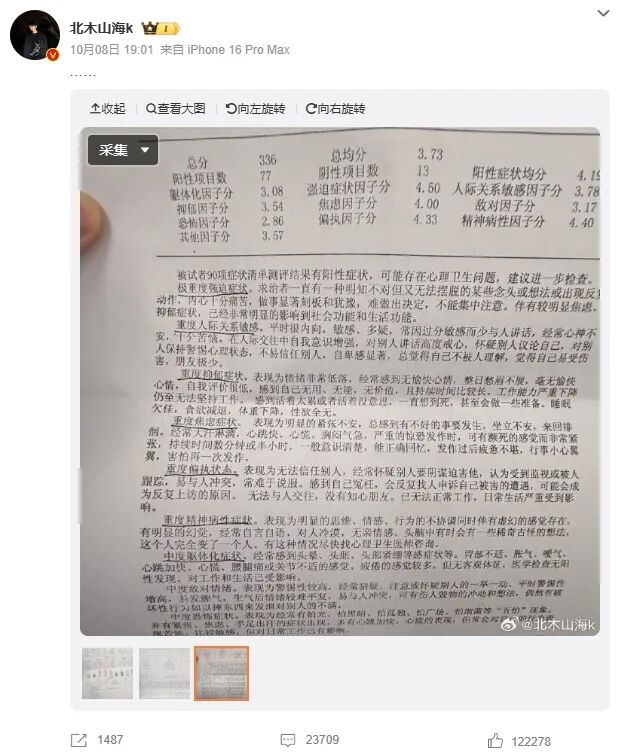 北木山海k
10月08日 19:01 来自 iPhone 16 Pro Max
……
收起 查看大图 向左旋转 向右旋转
采集
总分 336 总均分 3.73
阳性项目数 77 阴性项目数 13 阳性症状均分 4.19
躯体化因子分 3.08 强迫症状因子分 4.50 人际关系敏感因子分 3.78
抑郁因子分 3.54 焦虑因子分 4.00 敌对因子分 3.17
恐怖因子分 2.86 偏执因子分 4.33 精神病性因子分 4.40
其他因子分 3.57
被试者90项症状清单测评结果有阳性症状，可能存在心理卫生问题，建议进一步检查。
极重度强迫症状。求治者一直有一种明知不对但又无法摆脱的某些念头或想法或出现反复
动作，内心十分痛苦，做事显著刻板和犹豫，难做出决定，不能集中注意。伴有较明显焦虑、
抑郁症状，已经非常明显的影响到社会功能和生活功能。
重度人际关系敏感。平时很内向，敏感、多疑，常因过分敏感而少与人讲话，经常心神不
安，十分苦恼，在人际交往中自我意识增强，对别人讲话高度戒心，怀疑别人议论自己，对别
人保持警惕心理状态，不易信任别人，自卑感显著，总觉得自己不被人理解，觉得自己易受伤
害，朋友极少。
重度抑郁症状。表现为情绪非常低落，经常感到无愉快心情，整日愁眉不展，毫无愉快
心情，自我评价很低，感到自己无用、无能，无价值，且持续时间比较长。工作能力严重下降
仍至无法坚持工作。感到活着太累或者活着没意思，一直想到死，甚至会做一些准备。睡眠
欠佳，食欲减退，体重下降，性欲全无。
重度焦虑症状。表现为明显的紧张不安，总感到有不好的事要发生，坐立不安，来回徘
徊。经常大汗淋漓，心跳快、心慌、胸闷气急，严重的惊恐发作时，可有濒死的感觉而非常紧
张，持续时间数分钟或半小时，一般意识清楚，能正确回忆，发作过后疲惫不堪，行事小心翼
翼，害怕再一次发作。
重度偏执状态。表现为无法信任别人，经常怀疑别人要阴谋迫害他，认为受到监视或被人
跟踪，易与人冲突，常难于说服。感到自己冤枉，会反复找人申诉自己被害的遭遇，可能会成
为反复上访的原因。 无法与人交往，没有知心朋友。已无法正常工作，日常生活严重受到影
响。
重度精神病性症状。表现为明显的思维、情感、行为的不协调同时伴有虚幻的感觉存在，
有明显的幻觉，经常自言自语，对人冷漠，无亲情感。头脑中有时会有一些稀奇古怪的想法，
这个人完全变了一个人，有这种情况尽快找心理卫生医师咨询。
中度躯体化症状。经常感到头晕、头胀、头部紧绷等感症状等。胃部不适、胀气、嗳气、
心跳加快、心慌、腰腿痛或关节不适的感觉，疲倦的感觉较多。但无客观体征，医学检查无阳
性发现，对工作和生活已受影响。
中度敌对情绪。表现为警惕性较高，经常猜疑，注意或怀疑别人的一举一动，平时警惕性
增高，易发脾气，生气后情绪较难平复，易与人冲突，可有伤人毁物的冲动和想法，偶然有破
坏性行为如以摔东西来发泄对别人的不满。
中度恐怖症状。表现为经常有怕光、怕黑暗、怕孤独、怕广场、怕细菌等“百怕”现象。
并有紧张、焦虑、手足出汗的症状出现，多有心跳加快、心慌的表现，但常会对
比较敏感，但对日常工作已有影响。
@北木山海k
1487 23709 122278